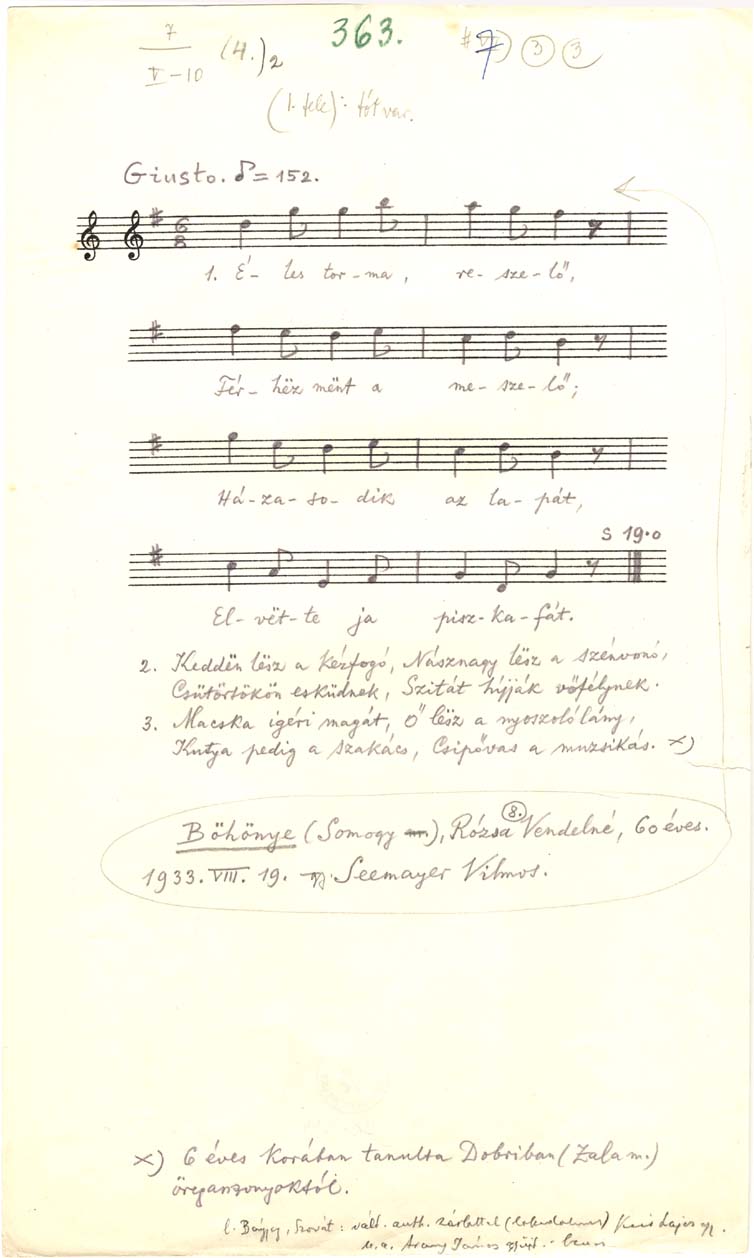 363.
7
V–10
(4.)2
7 3 3
(1. fele): tót var.
Giusto. ♩= 152.
6
8
1. É- les tor-ma, re-sze-lő,
Fér-hëz mënt a me-sze-lő;
Há-za-so-dik az la-pát,
S 19.0
El-vët-te ja pisz-ka-fát.
2. Keddën lësz a kézfogó, Násznagy lësz a szénvonó,
Csütörtökön esküdnek, Szitát híjják vőfélynek.
3. Macska igéri magát, Ő lësz a nyoszolólány,
Kutya pedig a szakács, Csipővas a muzsikás. x)
8.
Böhönye (Somogy m.), Rózsa Vendelné, 60 éves.
1933. VIII. 19. gy. Seemayer Vilmos.
x) 6 éves korában tanulta Dobriban (Zala m.)
öregasszonyoktól.
l. Szovát: vált. auth. zárlattal Kiss Lajos gy.
u.a. Arany János gyűjt.